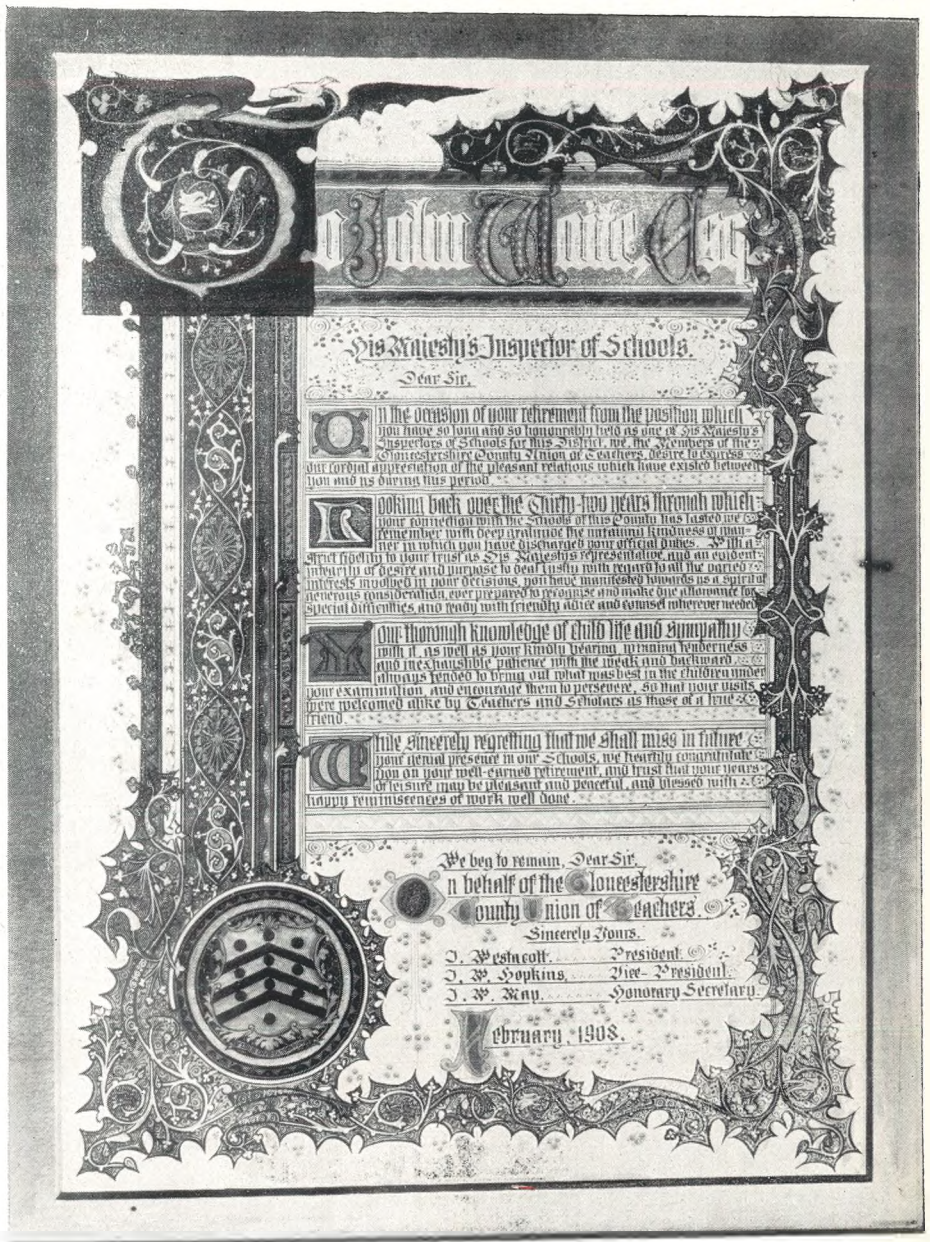 To John Waite, Esq
His Majesty's Inspector of Schools.
Dear Sir,
On the occasion of your retirement from the position which
you have so long and so honourably held as one of His Majesty's
Inspectors of Schools for this District, we, the Members of the
Gloucestershire County Union of Teachers, desire to express
our cordial appreciation of the pleasant relations which have existed between
you and us during this period.
Looking back over the Thirty-two years through which
your connection with the Schools of this County has lasted we
remember with deep gratitude the unfailing kindness of man-
ner in which you have discharged your official duties. With a
strict fidelity to your trust as His Majesty's representative, and an evident
integrity of desire and purpose to deal justly with regard to all the varied
interests involved in your decisions, you have manifested towards us a spirit of
generous consideration, ever prepared to recognise and make due allowance for
special difficulties, and ready with friendly advice and counsel wherever needed
Your thorough knowledge of child life and sympathy
with it, as well as your kindly bearing, winning tenderness
and inexhaustible patience with the weak and backward,
always tended to bring out what was best in the children under
your examination, and encourage them to persevere, so that your visits
were welcomed alike by Teachers and Scholars as those of a true
friend.
While sincerely regretting that we shall miss in future
your genial presence in our Schools, we heartily congratulate
you on your well-earned retirement, and trust that your years
of leisure may be pleasant and peaceful, and blessed with
happy reminiscences of work well done.
We beg to remain, Dear Sir,
On behalf of the Gloucestershire
County Union of Teachers.
Sincerely Yours.
J. Westacott. ...... President.
J. W. Hopkins, ...... Vice-President.
J. W. May. ...... Honorary Secretary.
February, 1908.